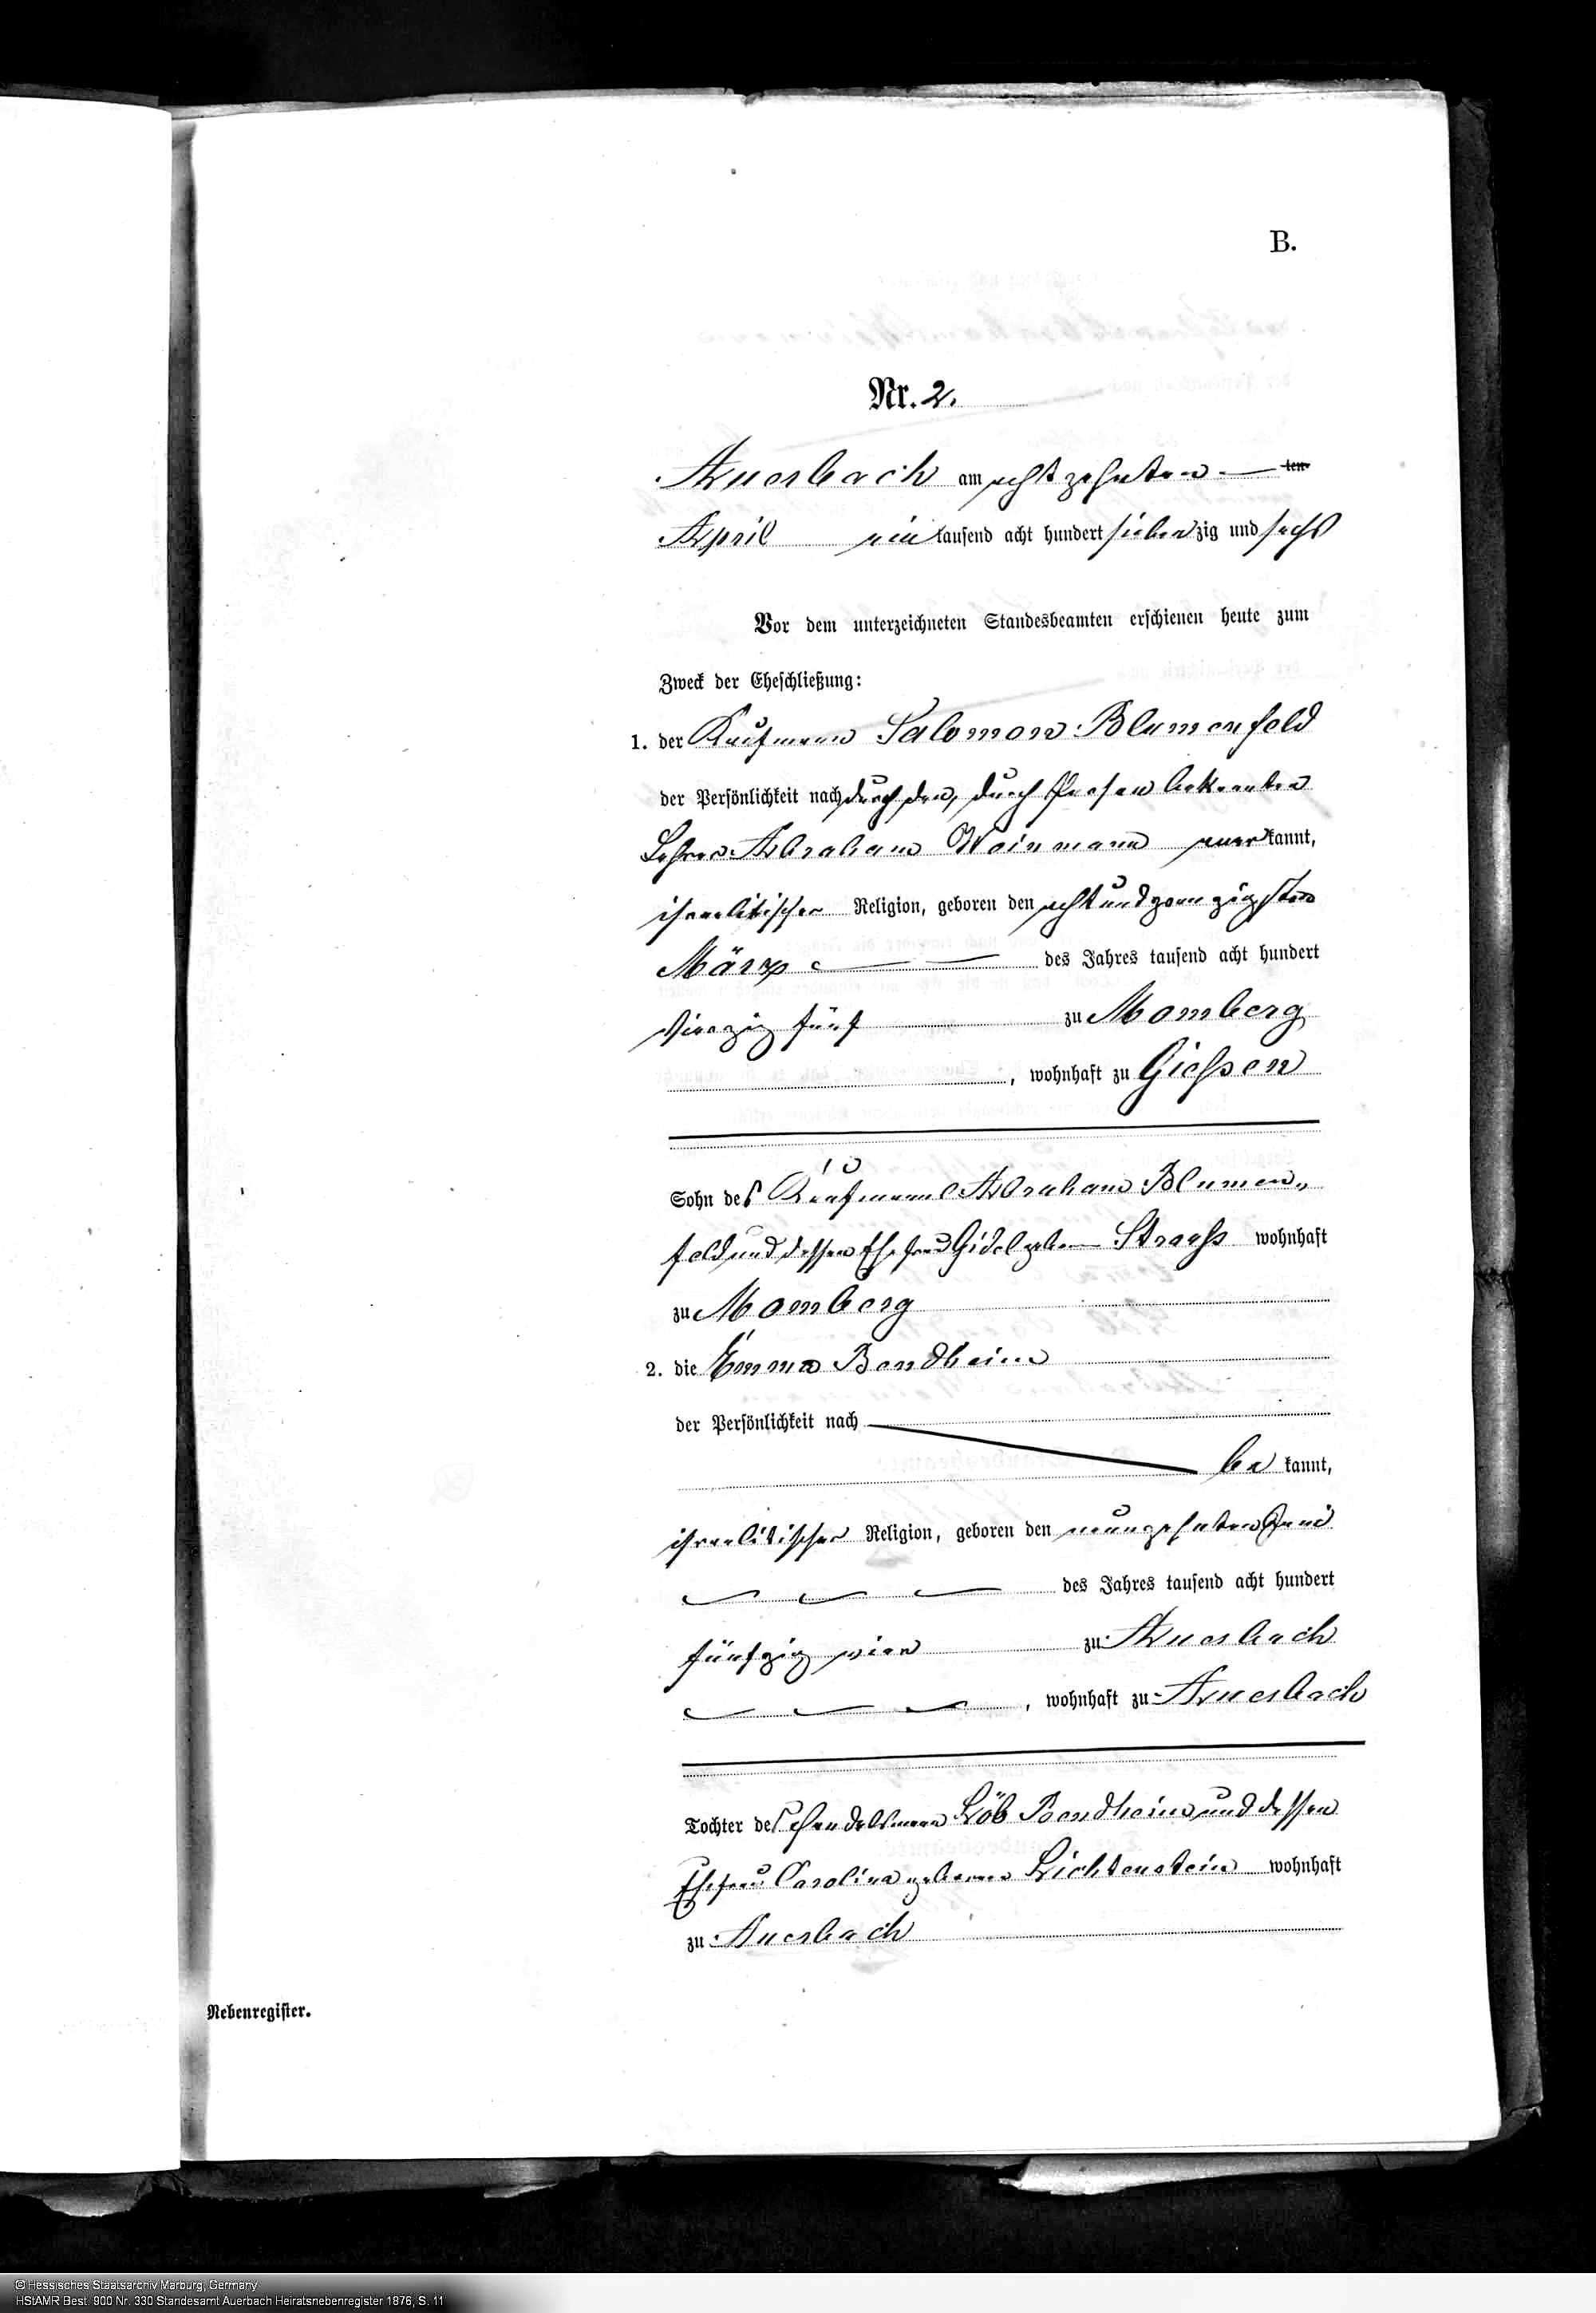 B.
Nr. 2.
Auerbach am achtzehnten ten
April ein tausend acht hundert siebenzig und sechs
Vor dem unterzeichneten Standesbeamten erschienen heute zum
Zweck der Eheschließung:
1. der Kaufmann Salomon Blumenfeld
der Persönlichkeit nach durch den, durch Person bekannten
Lehrer Abraham Weinmann anerkannt,
israelitischer Religion, geboren den achtundzwanzigsten
März des Jahres tausend acht hundert
vierzig fünf zu Momberg
, wohnhaft zu Giessen
Sohn des Kaufmanns Abraham Blumen„
feld und dessen Ehefrau Gidel geboren Strauss wohnhaft
zu Momberg
2. die Emma Bendheim
der Persönlichkeit nach
be kannt,
israelitischer Religion, geboren den neunzehnten Juni
des Jahres tausend acht hundert
fünfzig vier zu Auerbach
, wohnhaft zu Auerbach
Tochter des Handelsmann Löb Bendheim und dessen
Ehefrau Carolina geboren Lichtenstein wohnhaft
zu Auerbach
Nebenregister.
© Hessisches Staatsarchiv Marburg, Germany
HStAMR Best. 900 Nr. 330 Standesamt Auerbach Heiratsnebenregister 1876, S. 11